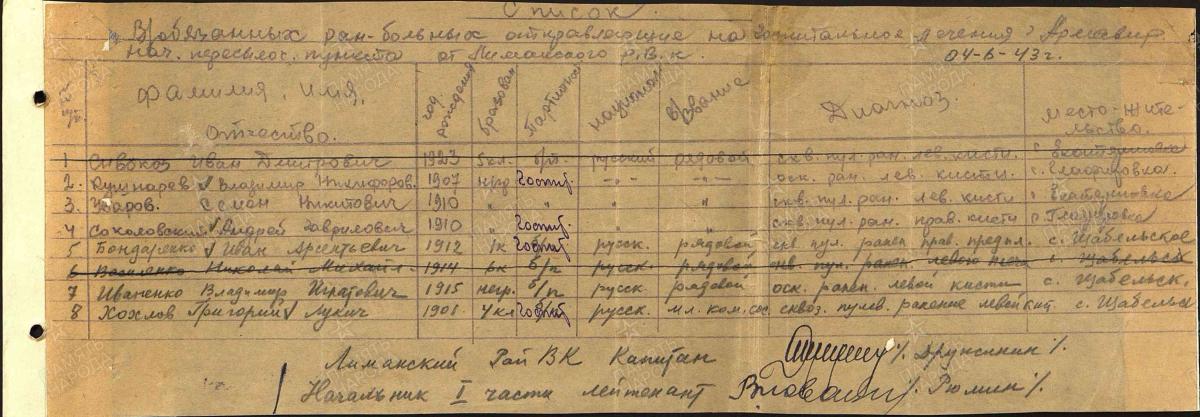 Список.
В/обязанных ран-больных отправляющие на госпитальное лечения г Армавир
нач. пересылоч. пункта от Лиманского Р.В.К. 04-6-43г.
№№ п/п. фамилия, имя, отчество. год рождения образован партийн национал в/звание Диагноз. место-жительство.
1 Сивокоз Иван Дмитрович 1923 5кл. б/п. русский рядовой скв. пул. ран. лев. кисти с Екатериновка
2. Кушнарев Владимир Никифоров. 1907 негр. госпит. -"- -"- оск. ран. лев. кисти. с. Глафировка.
3. Уваров. Семён Никитович 1910 " " " " скв. пул. ран. лев. кисти с Екатериновка
4 Соколовский Андрей Гаврилович 1910 " госпит. " " скв. пул. ран. прав. кисти с Глафировка
5 Бондаренко Иван Арсентьевич 1912 1к госпит русск. рядовой скв пул. ранен прав. предпл. с. Щабельское
6 Василенко Николай Михайл. 1914 6к б/п русск. рядовой скв. пул. ранен. левого с. Щабельск
7 Иваненко Владимир Игнатович 1915 негр. б/п русск. рядовой оск. ранен. левой кисти с. Щабельск.
8 Хохлов Григорий Лукич 1901 4кл госпит русск. мл. ком. сос. сквоз. пулев. ранение левой кист. с. Щабельск
Лиманский РайВК Капитан /Дружинин/.
Начальник I части лейтенант /Рюмин/.